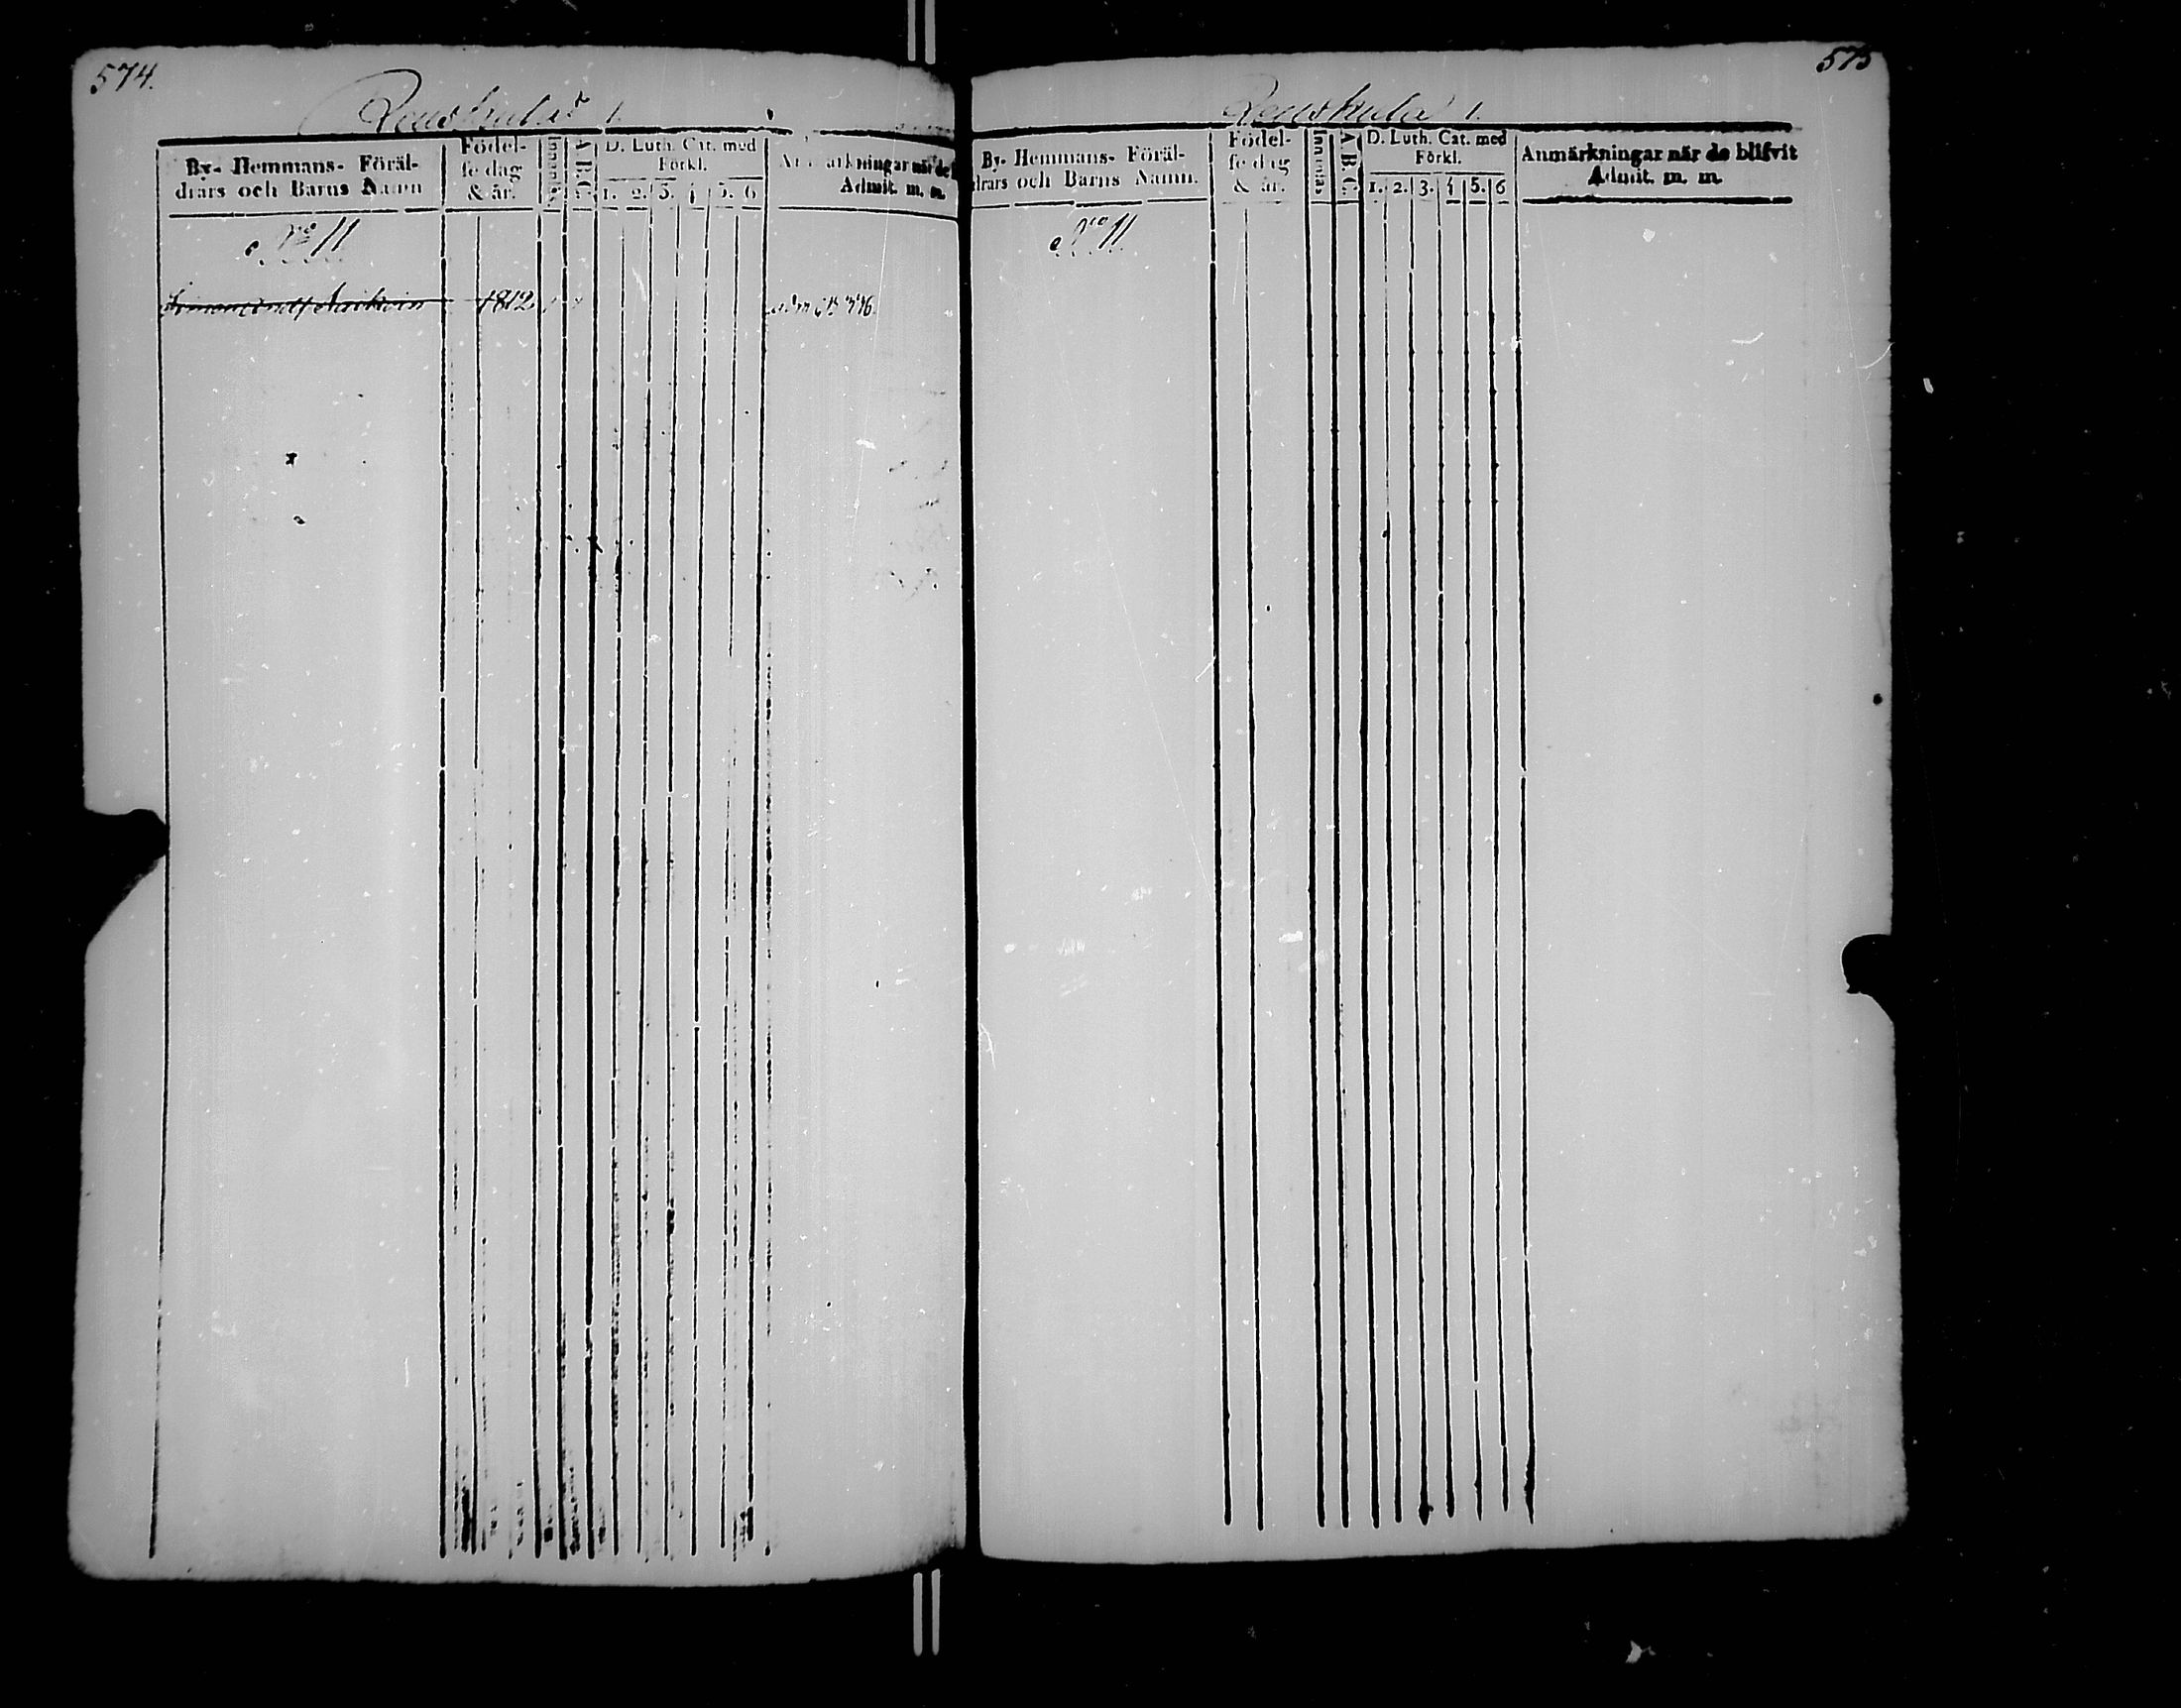 574.
By- Hemmans- Föräl-
drars och Barns Namn
Födel-
se dag
& år.
A B C.
D. Luth. Cat. med
Förkl.
1. 2. 3. 4 5. 6
Anmärkningar när de
Admit. m. m.
No 11
1812
575
1.
By- Hemmans- Föräl-
drars och Barns Namn.
Födel-
se dag
& år.
Innanläs.
A B C.
D. Luth. Cat. med
Förkl.
1. 2. 3. 4 5. 6
Anmärkningar när de blifvit
Admit. m. m.
No 11